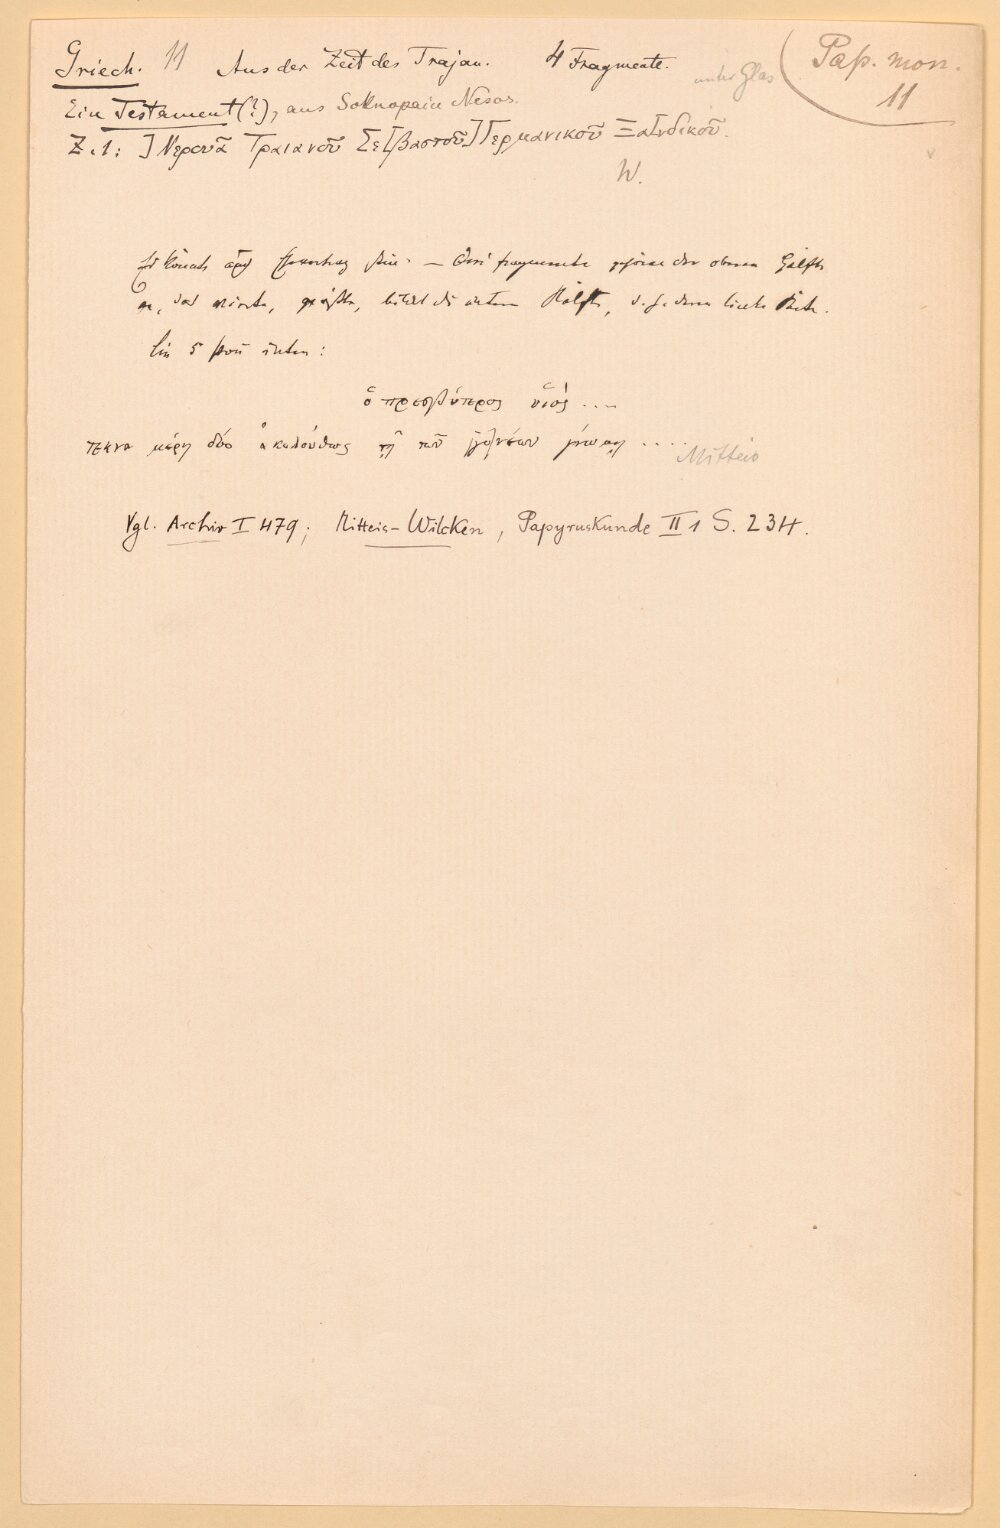 Griech. 11 Aus der Zeit des Trajan. 4 Fragmente. unter Glas
Pap. mon.
11
Ein Testament (?), aus Soknopaiu Nesos.
Z. 1: ] Νερουᾶ Τραιανοῦ Σε[βαστοῦ] Γερμανικοῦ Ξανδικοῦ.
W.
Es könnte auch sein. — Drei fragmente gehören der oberen Hälfte
an, das vierte, größte, bildet die untere Hälfte, d. h. deren linke Seite.
5 unten:
ὁ πρεσβύτερος υἱός ....
τεκνα μέρη δύο ἀκολούθως τῇ τῶν ....
Mitteis
Vgl. Archiv I 479; Mitteis-Wilcken, Papyruskunde II 1 S. 234.